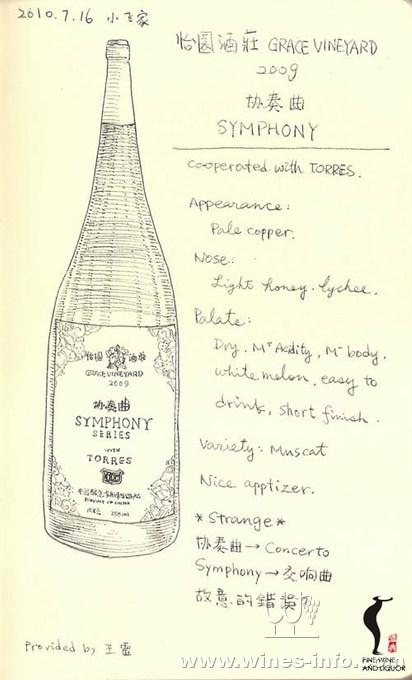 2010.7.16 小飞家
怡园酒莊 GRACE VINEYARD
2009
协奏曲
SYMPHONY
Cooperated with TORRES.
Appearance:
Pale copper.
Nose:
Light honey. lychee.
Palate:
Dry. M+ Acidity, M- body.
white melon, easy to
drink, short finish.
Variety: Muscat
Nice apptizer.
*Strange*
协奏曲→Concerto
Symphony→交响曲
故意的錯誤
怡园 酒莊
GRACE VINEYARD
2009
协奏曲
SYMPHONY
SERIES
WITH
TORRES
PRODUCT OF CHINA
750ml
Provided by 王雷
www.wines-info.com
FINE WINE
AND LIQUOR